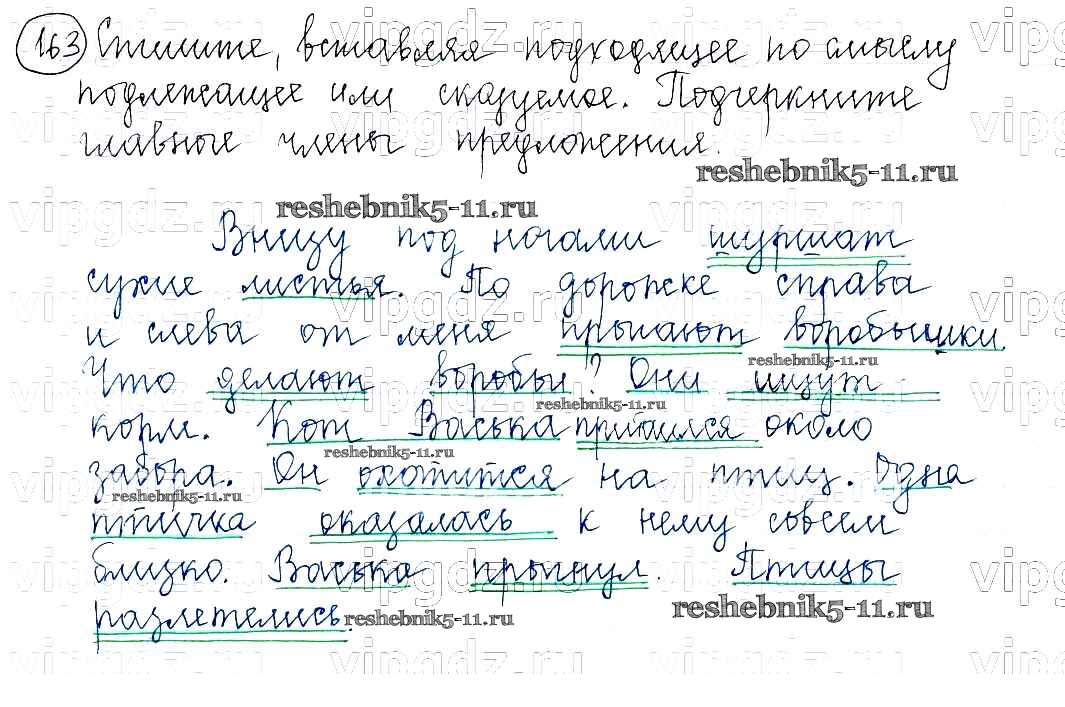 163 Спишите, вставляя подходящее по смыслу
подлежащее или сказуемое. Подчеркните
главные члены предложения.
reshebnik5-11.ru
reshebnik5-11.ru
Внизу под ногами шуршат
сухие листья. По дорожке справа
и слева от меня прыгают воробышки.
reshebnik5-11.ru
Что делают воробьи? Они ищут
reshebnik5-11.ru
корм. Кот Васька притаился около
reshebnik5-11.ru
забора. Он охотится на птиц. Одна
reshebnik5-11.ru
птичка оказалась к нему совсем
близко. Васька прыгнул. Птицы
разлетелись.
reshebnik5-11.ru
reshebnik5-11.ru
vipgdz.ru